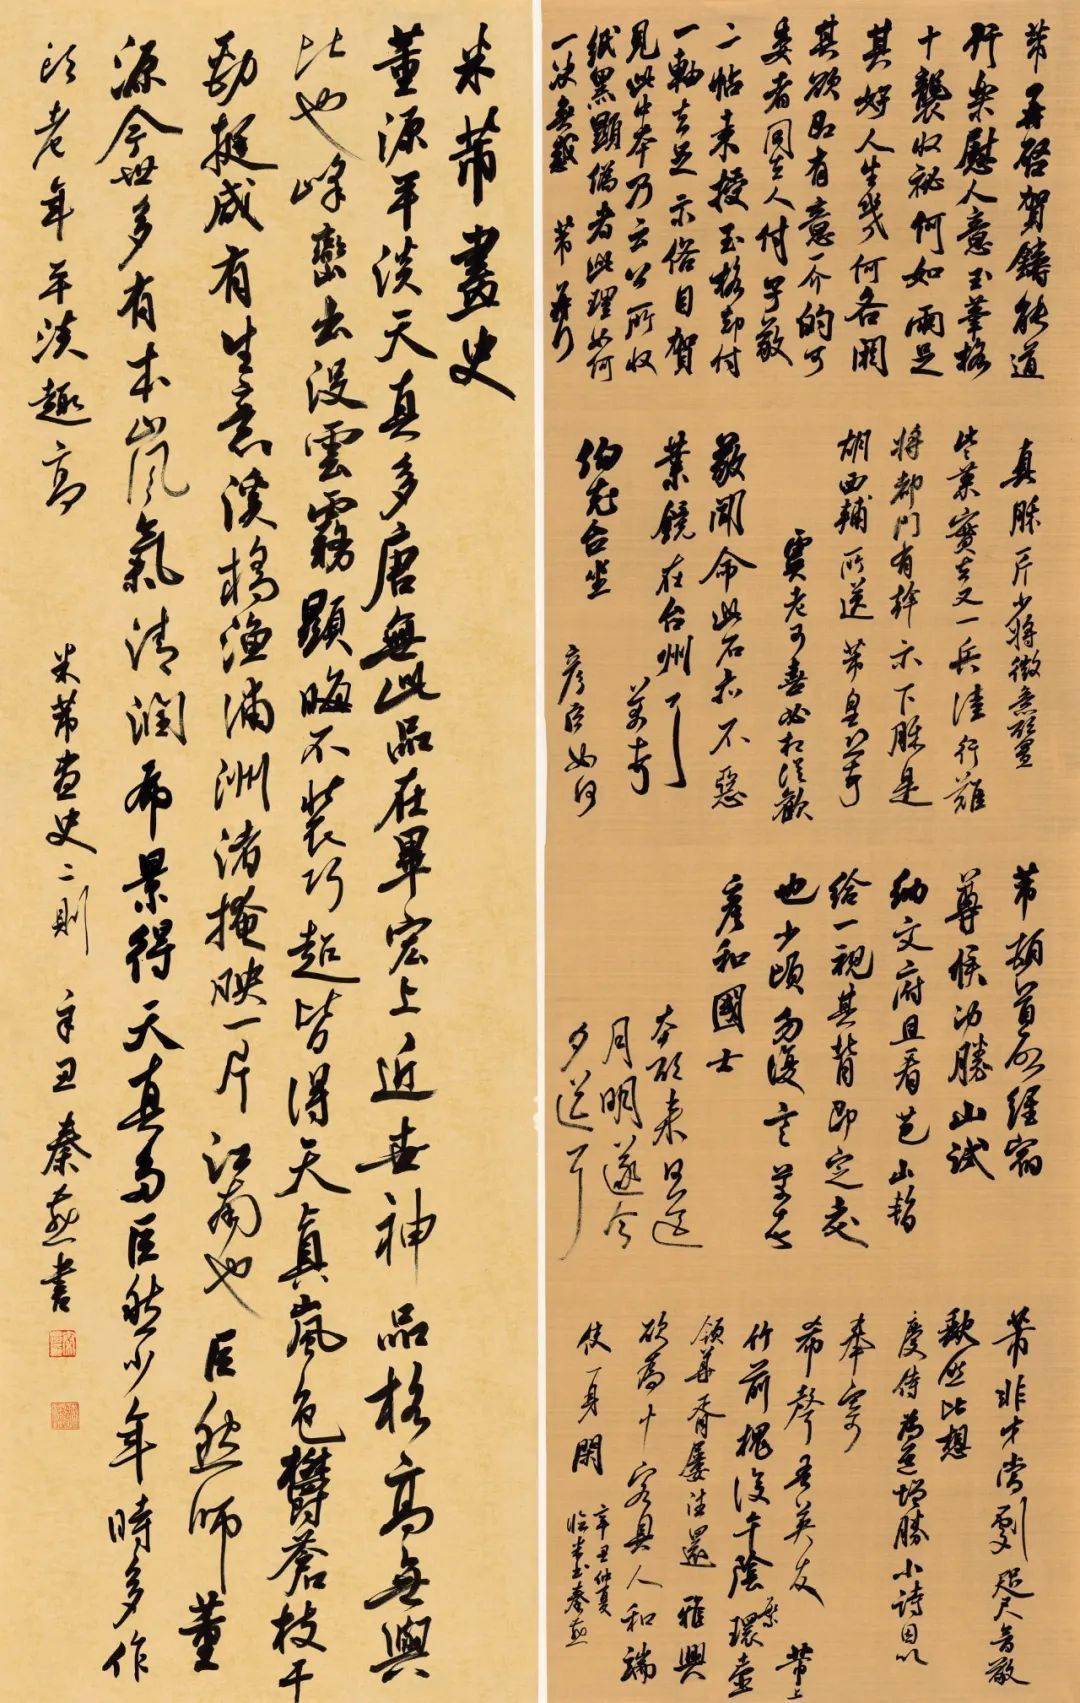 芾再啓賀鑄能道
行樂慰人意玉筆格
十襲收祕何如兩足
其好人生幾何各閼
其欲即有意一介的可
委者同去人付子敬
二帖來授玉格却付
一軸去足示俗目賀
見此中本乃云公所收
紙黑顯偽者此理如何
一決無惑 芾再行
真酥一斤少將微意欲置
些果實去又一兵陸行難
將都門有幹示下酥是
胡西輔所送 芾皇恐
虞老可喜必相從歡
敬聞命此石亦不惡
業鏡在台州
伯充台坐
芾頓首再啓經宿
尊候沖勝山試
納文府且看芭山暫
給一視其背即定交
也少頃勿復言芾頓首
彥和國士
本欲來日送
月明遂今
夕送耳
芾非才當劇咫尺音敬
缺然比想
慶侍為道增勝小詩因以
奉寄
希聲吾英友 芾上
竹前槐後午陰繁環壺
領華胥屢往還 雅興
欲為十客具人和端
使一身閑
辛丑仲夏
臨米芾秦燕
米芾畫史
董源平淡天真多唐無此品在畢宏上近世神品格高無與
比也峰巒出没雲霧顯晦不裝巧趣皆得天真嵐色鬱蒼枝干
勁挺咸有生意溪橋漁浦洲渚掩映一片江南也 巨然師董
源今世多有本嵐氣清潤布景得天真多巨然少年時多作
老年平淡趣高 米芾畫史二則 辛丑秦燕書